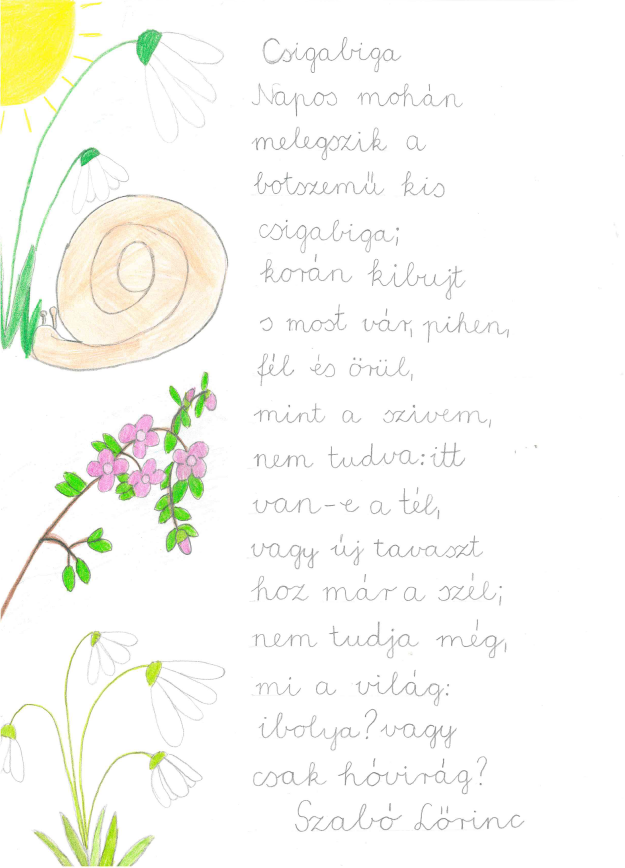 Csigabiga
Napos mohán
melegszik a
botszemű kis
csigabiga;
korán kibujt
s most vár, pihen,
fél és örül,
mint a szivem,
nem tudva: itt
van-e a tél,
vagy új tavaszt
hoz már a szél;
nem tudja még,
mi a világ:
ibolya? vagy
csak hóvirág?
Szabó Lőrinc